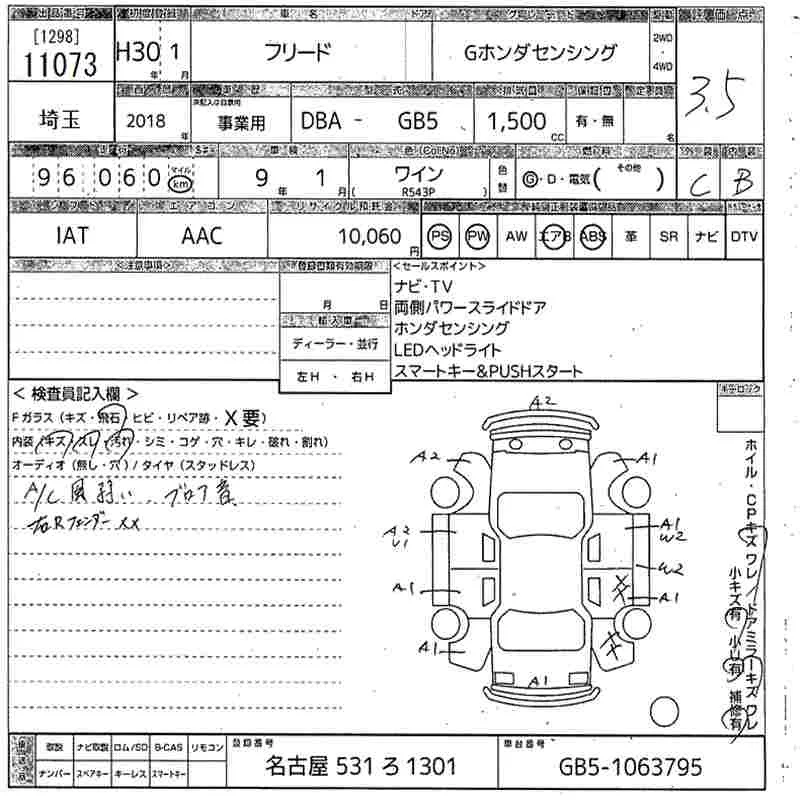 出品番号 初度登録 車名 ドア グレード 駆動 評価点
[1298]
11073 H30年 1月 フリード Gホンダセンシング 2WD・4WD 3.5
車歴 型式 排気量
埼玉 2018年 事業用 DBA - GB5 1,500cc 有・無 名
走行 車検 色(Col No) 燃料 外装 内装
96060 マイル km 9年 1月 ワイン (R543P) 色替 G・D・電気( その他 ) C B
シフト エアコン リサイクル預託金
IAT AAC 10,060円 PS PW AW エアB ABS 革 SR ナビ DTV
<注意事項> 登録書類有効期限 <セールスポイント>
月 日
輸入車
ディーラー・並行
左H ・ 右H
ナビ・TV
両側パワースライドドア
ホンダセンシング
LEDヘッドライト
スマートキー&PUSHスタート
< 検査員記入欄 >
Fガラス (キズ・飛石・ヒビ・リペア跡・X要)
内装 (キズ・スレ・汚れ・シミ・コゲ・穴・キレ・破れ・割れ)
オーディオ (無し・穴) / タイヤ (スタッドレス)
A/C 風弱い、ブロア音
右Rフェンダー XX
A2
A2 A1
A2 U1 A1 W2
W2
A1 A1
A1
A1
ホイル・CPキズワレ/ドアミラーキズワレ
小キズ有 小U有 補修有
取説 ナビ取説 ロム/SD B-CAS リモコン
ナンバー スペアキー キーレス スマートキー
登録番号
名古屋 531 ろ 1301
車台番号
GB5-1063795